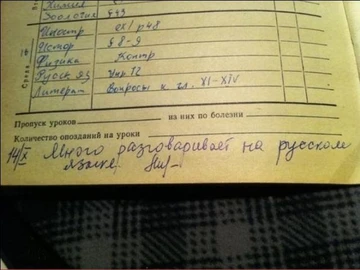 Химия
Зоология §49
Иностр ex1 p48
Истор §8-9
Физика Контр
Русск яз Упр. 12
Литерат Вопросы к гл. XI-XIV
Среда 16
Пропуск уроков из них по болезни
Количество опозданий на уроки
14/X Много разговаривает на русском
языке.